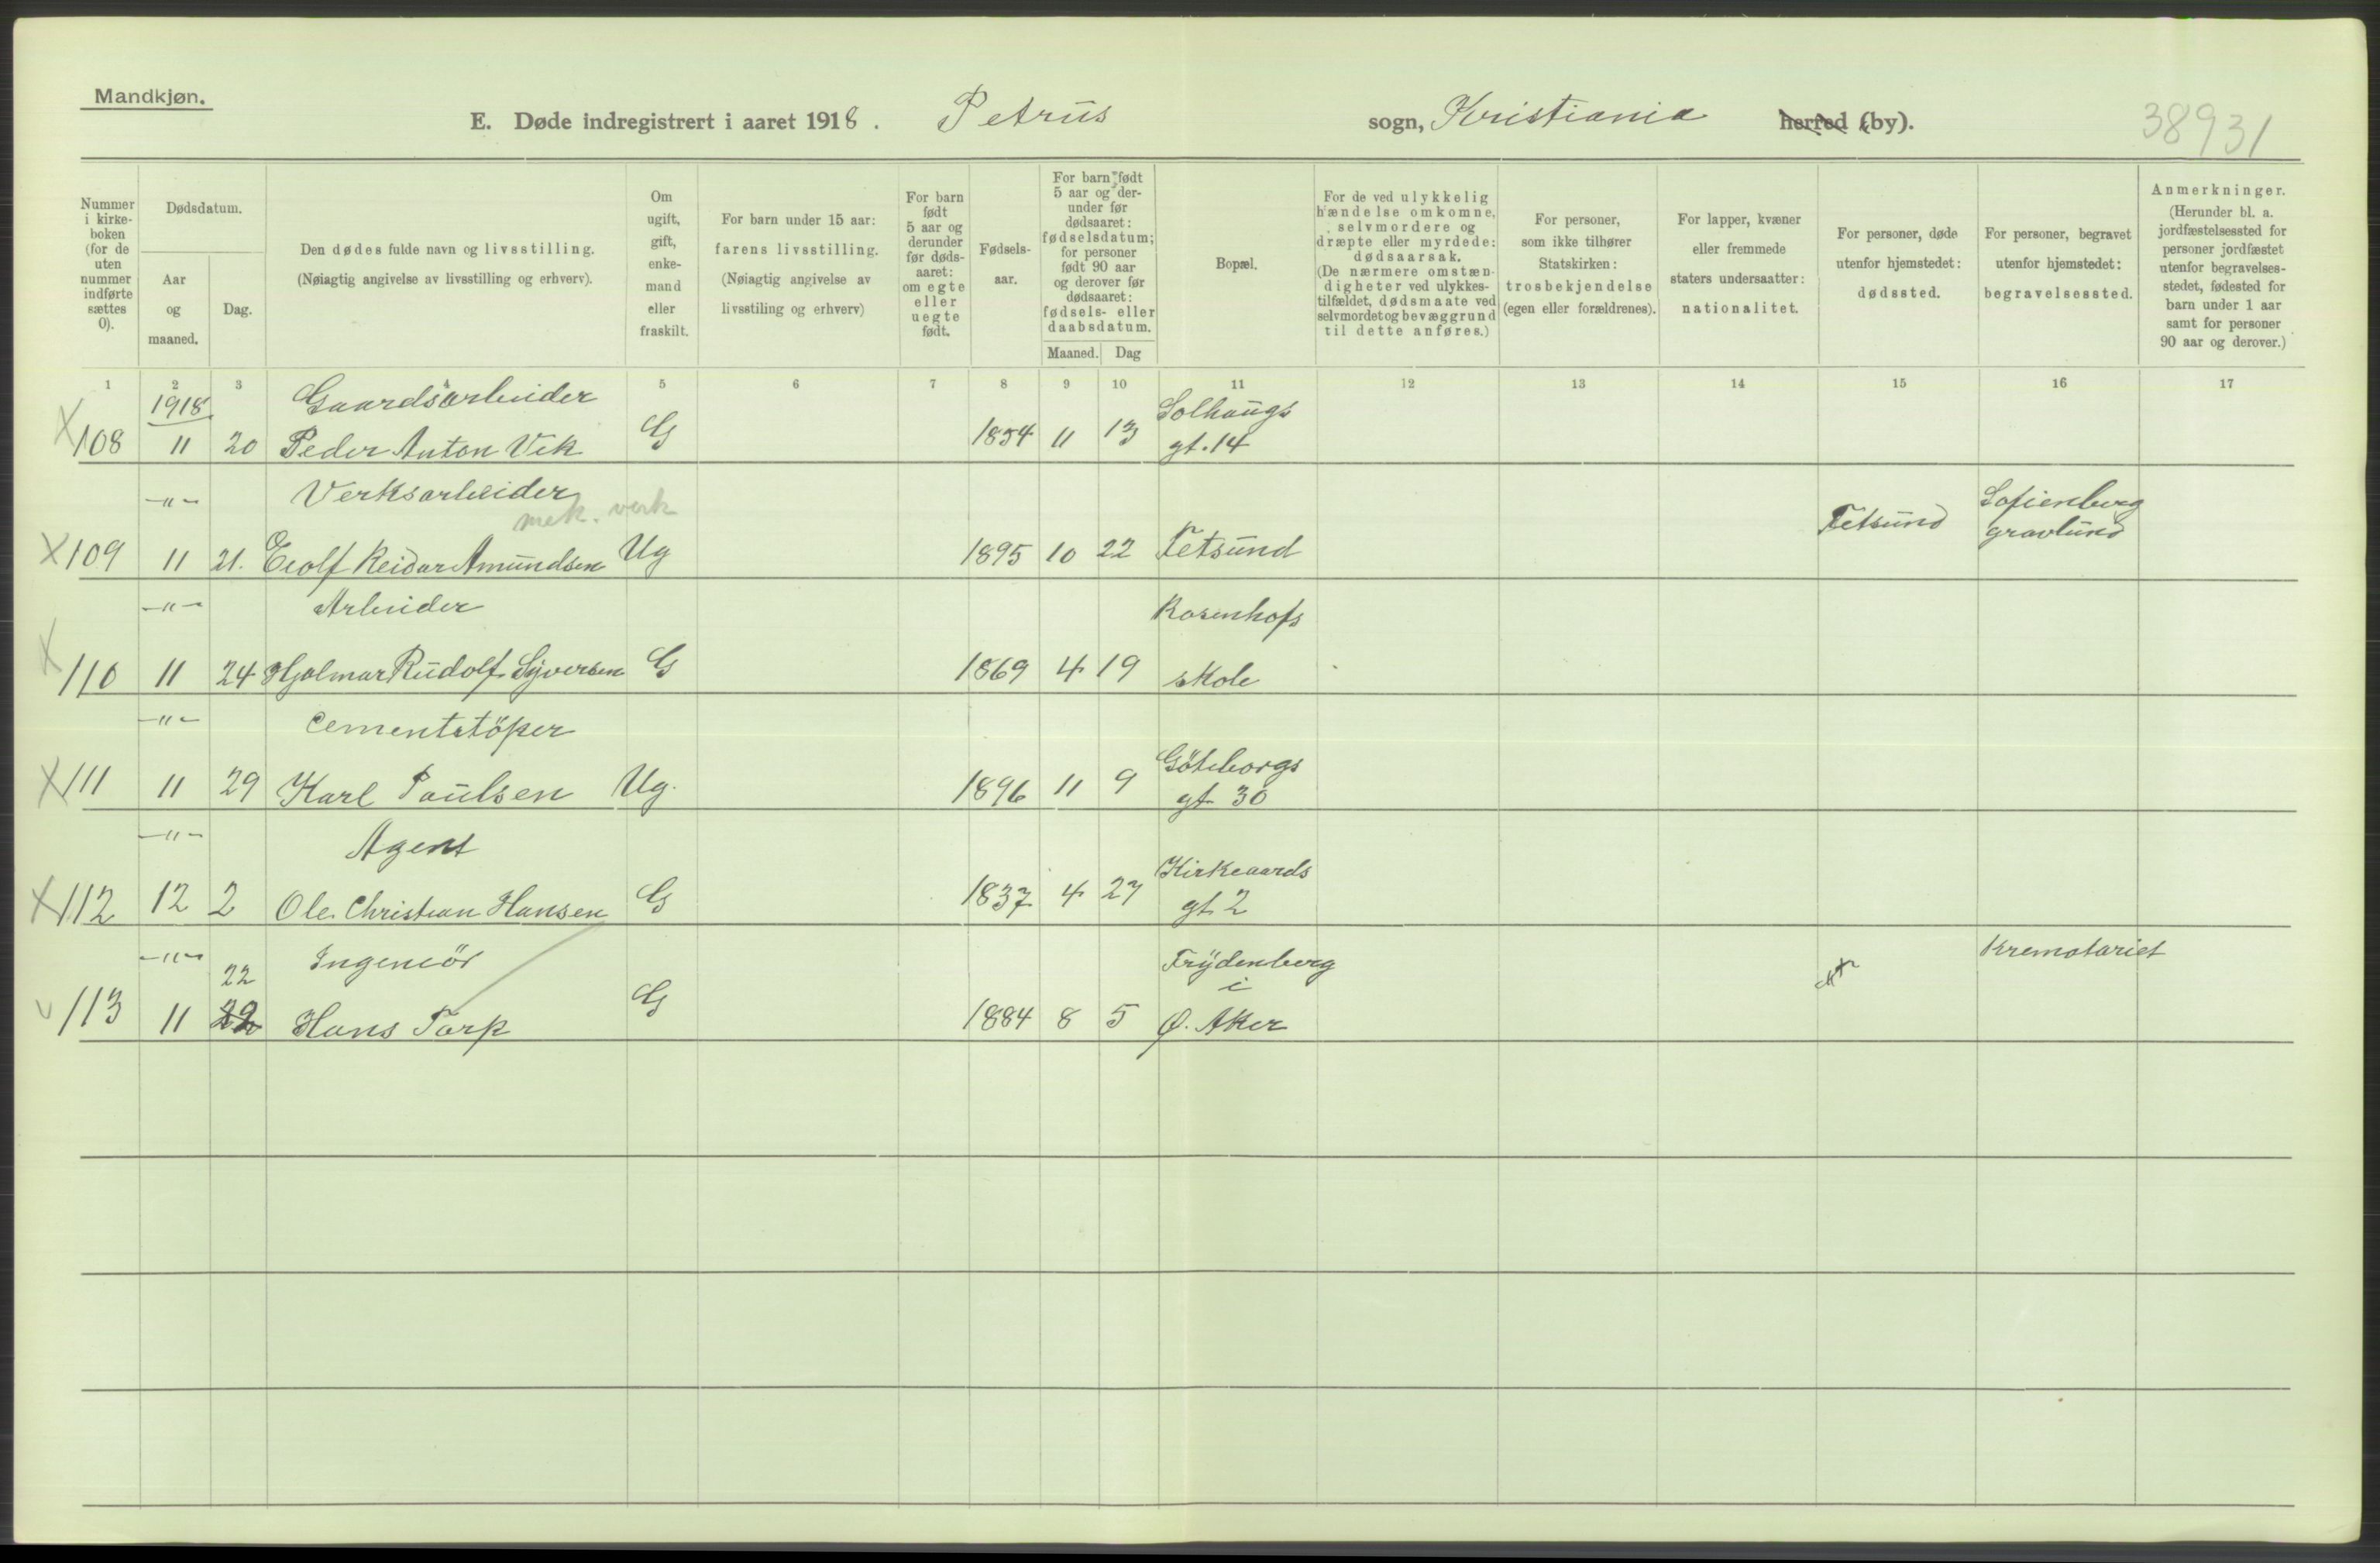 Mandkjøn.
E. Døde indregistrert i aaret 1918. Petrus sogn, Kristiania herred (by).
38931
Nummer i kirkeboken (for de uten nummer indførte sættes 0).
Dødsdatum.
Aar og maaned.
Dag.
Den dødes fulde navn og livsstilling.
(Nøiagtig angivelse av livsstilling og erhverv).
Om ugift, gift, enkemand eller fraskilt.
For barn under 15 aar:
farens livsstilling.
(Nøiagtig angivelse av livsstiling og erhverv)
For barn født 5 aar og derunder før dødsaaret: om egte eller uegte født.
Fødselsaar.
For barn født 5 aar og derunder før dødsaaret: fødselsdatum; for personer født 90 aar og derover før dødsaaret: fødsels- eller daabsdatum.
Maaned. Dag
Bopæl.
For de ved ulykkelig hændelse omkomne, selvmordere og dræpte eller myrdede: dødsaarsak.
(De nærmere omstændigheter ved ulykkestilfældet, dødsmaate ved selvmordet og bevæggrund til dette anføres.)
For personer, som ikke tilhører Statskirken: trosbekjendelse (egen eller forældrenes).
For lapper, kvæner eller fremmede staters undersaatter: nationalitet.
For personer, døde utenfor hjemstedet: dødssted.
For personer, begravet utenfor hjemstedet: begravelsessted.
Anmerkninger.
(Herunder bl. a. jordfæstelsessted for personer jordfæstet utenfor begravelsesstedet, fødested for barn under 1 aar samt for personer 90 aar og derover.)
1 2 3 5 6 7 8 9 10 11 12 13 14 15 16 17
1918 Gaardsarbeider Solhaugs
X 108 11 20 Peder Anton Vik G 1854 11 13 gt. 14
-"- Verksarbeider Sofienberg
mek. verk Fetsund gravlund
X 109 11 21. Eiolf Reidar Amundsen Ug 1895 10 22 Fetsund
-"- Arbeider Rosenhofs
X 110 11 24 Hjalmar Rudolf Syversen G 1869 4 19 skole
-"- Cementstöper Göteborgs
X 111 11 29 Karl Paulsen Ug. 1896 11 9 gt. 30
-"- Agent Kirkeaards
X 112 12 2 Ole Christian Hansen G 1837 4 27 gt. 2
-"- 22 Ingeniör Frydenberg Krematoriet
i
v 113 11 22 Hans Torp G 1884 8 5 Ø. Aker